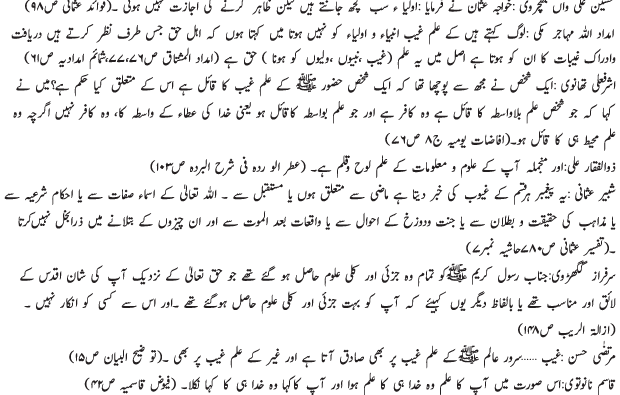 حسین علی واں بھچروی: خواجہ عثمان نے فرمایا :اولیا ء سب کچھ جانتے ہیں لیکن ظاہر کرنے کی اجازت نہیں ہوتی ۔(فوائد عثمانی ص۹۸)
امداد اللہ مہاجر مکی :لوگ کہتے ہیں کے علم غیب انبیاء و اولیاء کو نہیں ہوتا میں کہتا ہوں کہ اہل حق جس طرف نظر کرتے ہیں دریافت
وادراک غیبات کا ان کو ہوتا ہے اصل میں یہ علم (غیب ،نبیوں ،ولیوں کو ہونا ) حق ہے (امداد المشتاق ص۷۶،۷۷،شمائم امدادیہ ص۶۱)
اشرفعلی تھانوی :ایک شخص نے مجھ سے پوچھا تھا کہ ایک شخص حضور ﷺ کے علم غیب کا قائل ہے اس کے متعلق کیا حکم ہے؟میں نے
کہا کہ جو شخص علم بلاواسطہ کا قائل ہے وہ کافر ہے اور جو علم بواسطہ کاقائل ہو یعنی خدا کی عطاء کے واسطہ کا، وہ کافر نہیں اگرچہ وہ
علم محیط ہی کا قائل ہو۔(افاضات یومیہ ج۸ ص۷۶)
ذوالفقار علی:اور منجملہ آپ کے علوم و معلومات کے علم لوح وقلم ہے۔ (عطر الو ردہ فی شرح البردہ ص۱۰۳)
شبیر عثمانی :یہ پیغمبر ہرقسم کے غیوب کی خبر دیتا ہے ماضی سے متعلق ہوں یا مستقبل سے ۔ اللہ تعالیٰ کے اسماء صفات سے یا احکام شرعیہ سے
یا مذاہب کی حقیقت و بطلان سے یا جنت ودوزخ کے احوال سے یا واقعات بعد الموت سے اور ان چیزوں کے بتلانے میں ذرابخل نہیں کرتا
۔(تفسیر عثمانی ص۷۸۰حاشیہ نمبر۷)
سرفراز گکھڑوی:جناب رسول کریم ﷺ کو تمام وہ جزئی اور کلی علوم حاصل ہو گئے تھے جو حق تعالیٰ کے نزدیک آپ کی شان اقدس کے
لائق اور مناسب تھے یا بالفاظ دیگر یوں کہیئے کہ آپ کو بہت جزئی اور کلی علوم حاصل ہوگئے تھے ۔اور اس سے کسی کو انکار نہیں ۔
(ازالۃ الریب ص۱۴۸)
مرتضٰی حسن :غیب ......سرور عالم ﷺ کے علم غیب پر بھی صادق آتا ہے اور غیر کے علم غیب پر بھی ۔(تو ضیح البیان ص۱۵)
قاسم نانوتوی:اس صورت میں آپ کا علم وہ خدا ہی کا علم ہوا اور آپ کاکہا وہ خدا ہی کا کہا نکلا۔ (فیوض قاسمیہ ص۴۲)